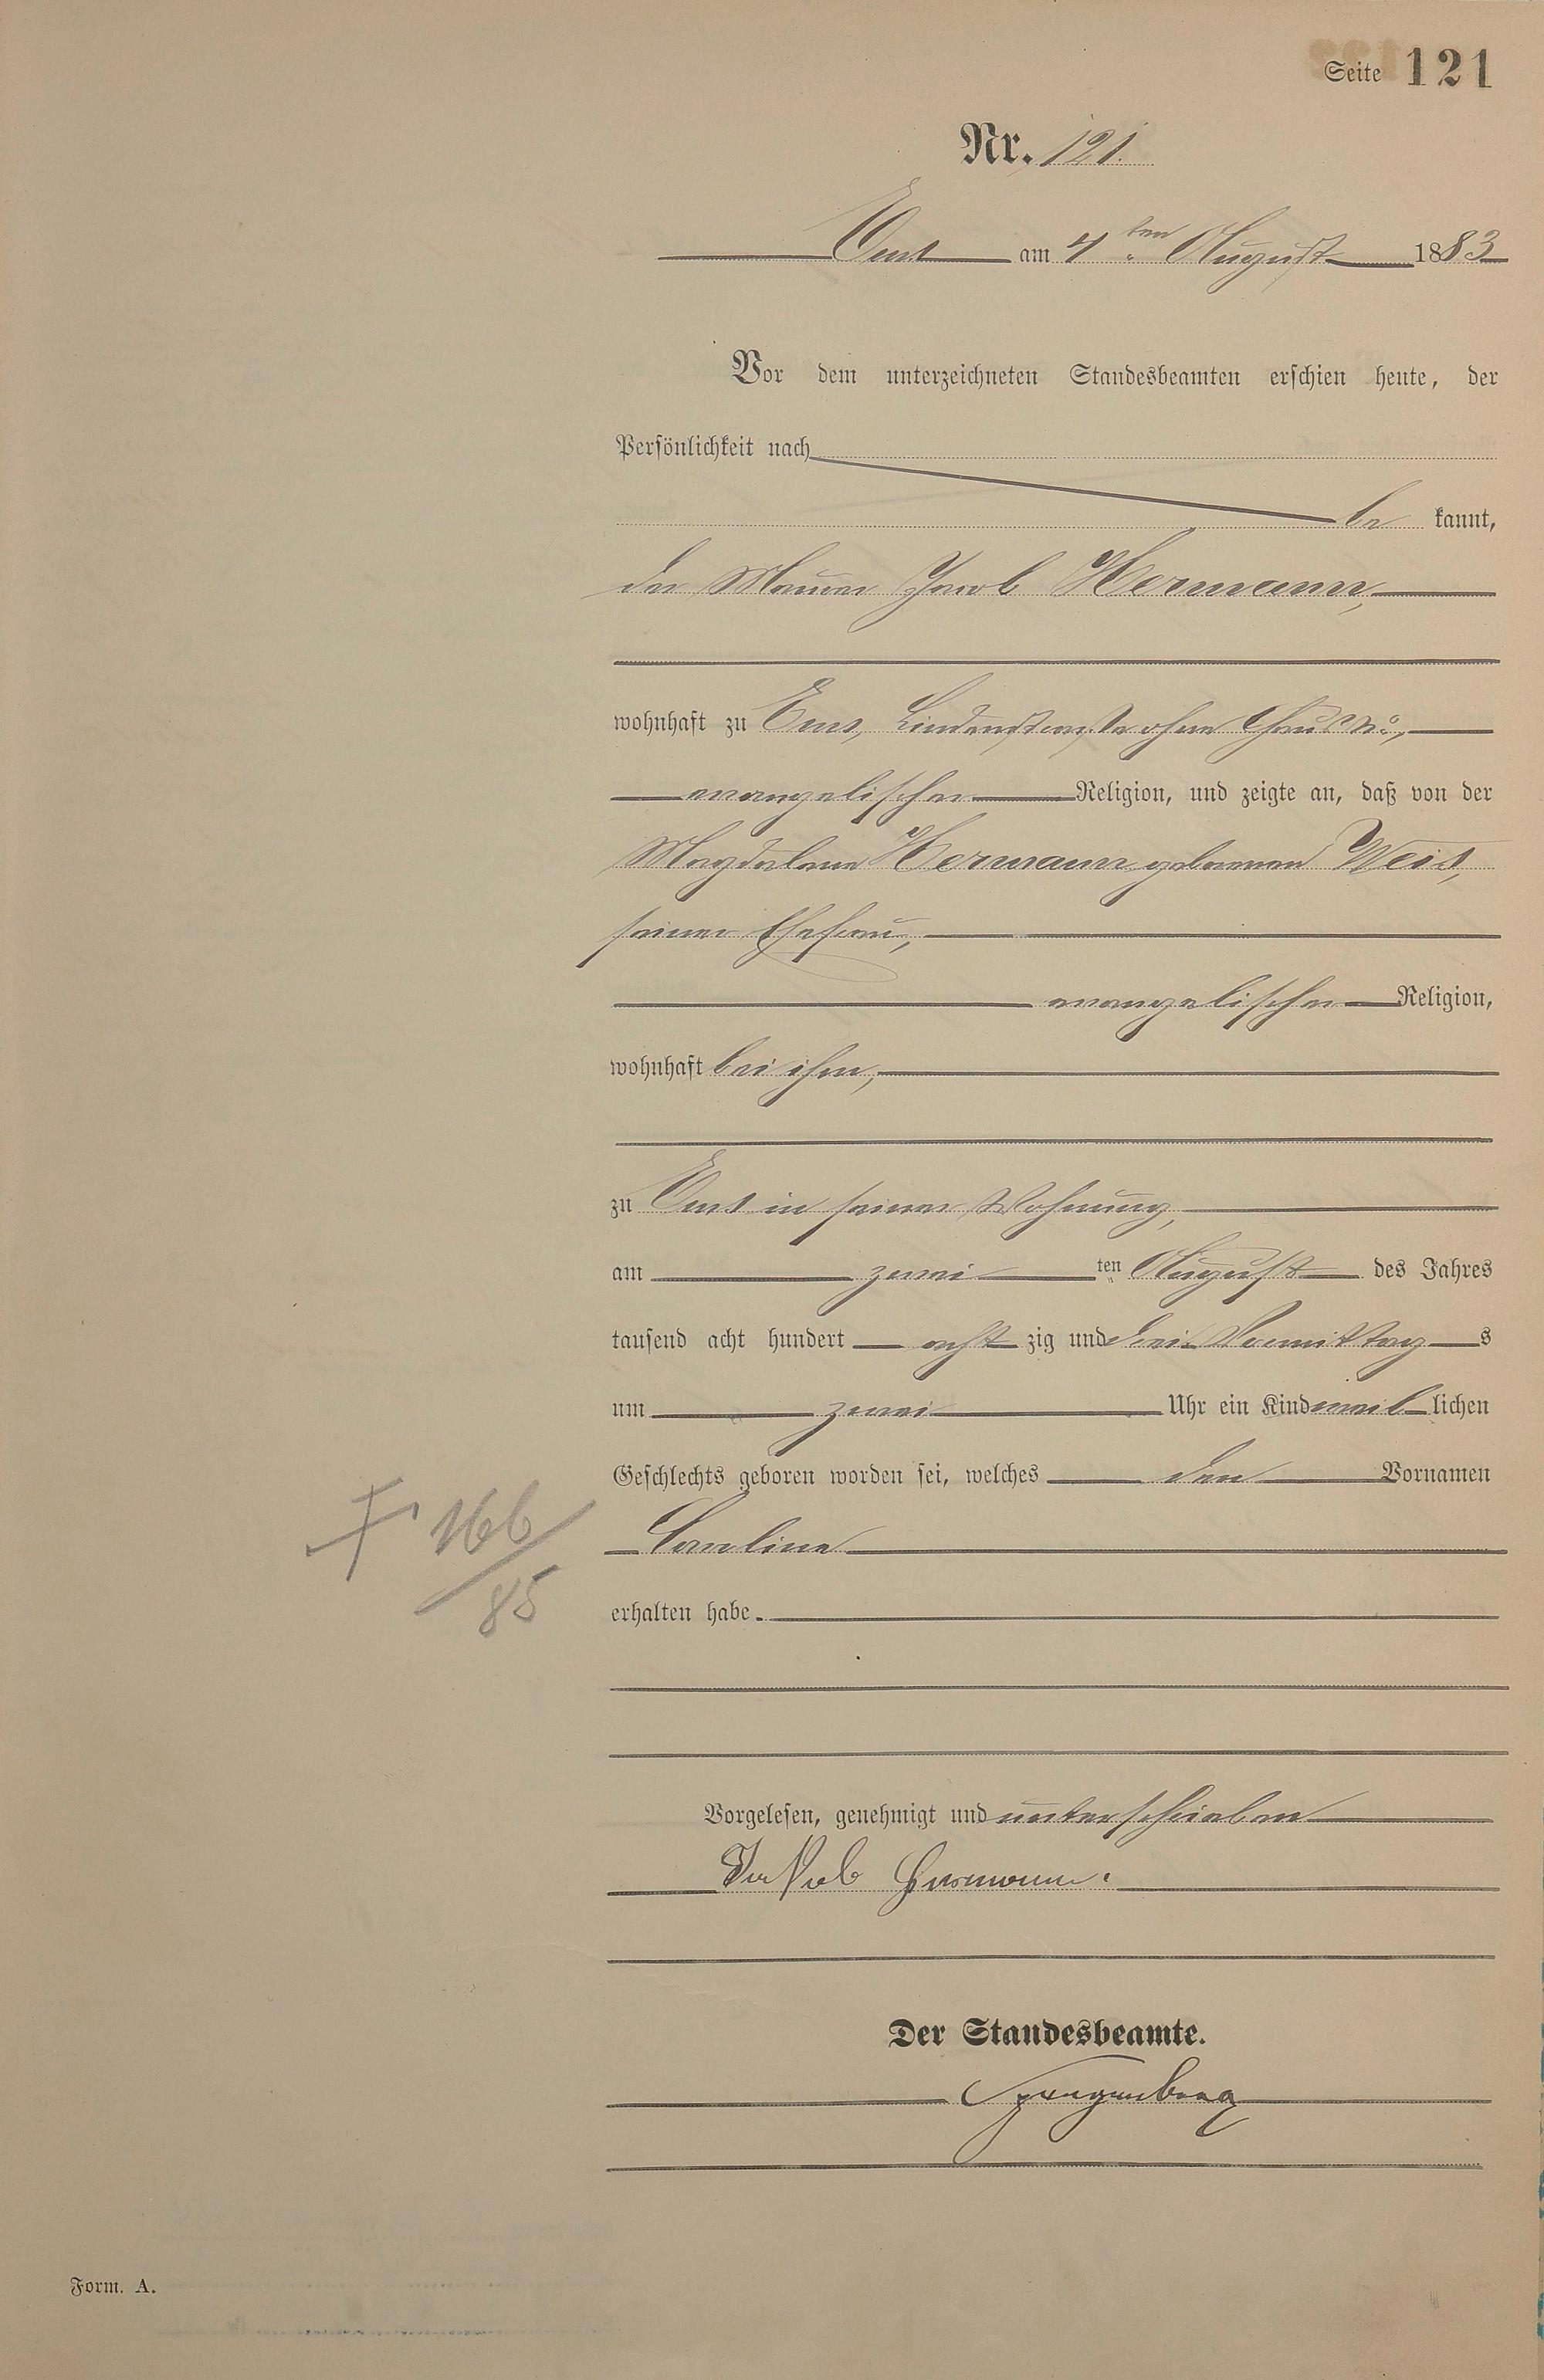 Seite 121
Nr. 121.
Ems am 4ten August 1883
Vor dem unterzeichneten Standesbeamten erschien heute, der
Persönlichkeit nach
be kannt,
der Maurer Jacob Hermann,
wohnhaft zu Ems, Lindenstraße ohne Haus No,
evangelischer Religion, und zeigte an, daß von der
Magdalena Hermann geborenen Weis,
seiner Ehefrau,
evangelischer Religion,
wohnhaft bei ihm,
zu Ems in seiner Wohnung,
am zwei ten August des Jahres
tausend acht hundert acht zig und drei Vormittag s
um zwei Uhr ein Kind weib lichen
Geschlechts geboren worden sei, welches den Vornamen
† 166/85
Caroline
erhalten habe.
Vorgelesen, genehmigt und unterschrieben
Jakob Hermann.
Der Standesbeamte.
Form. A.